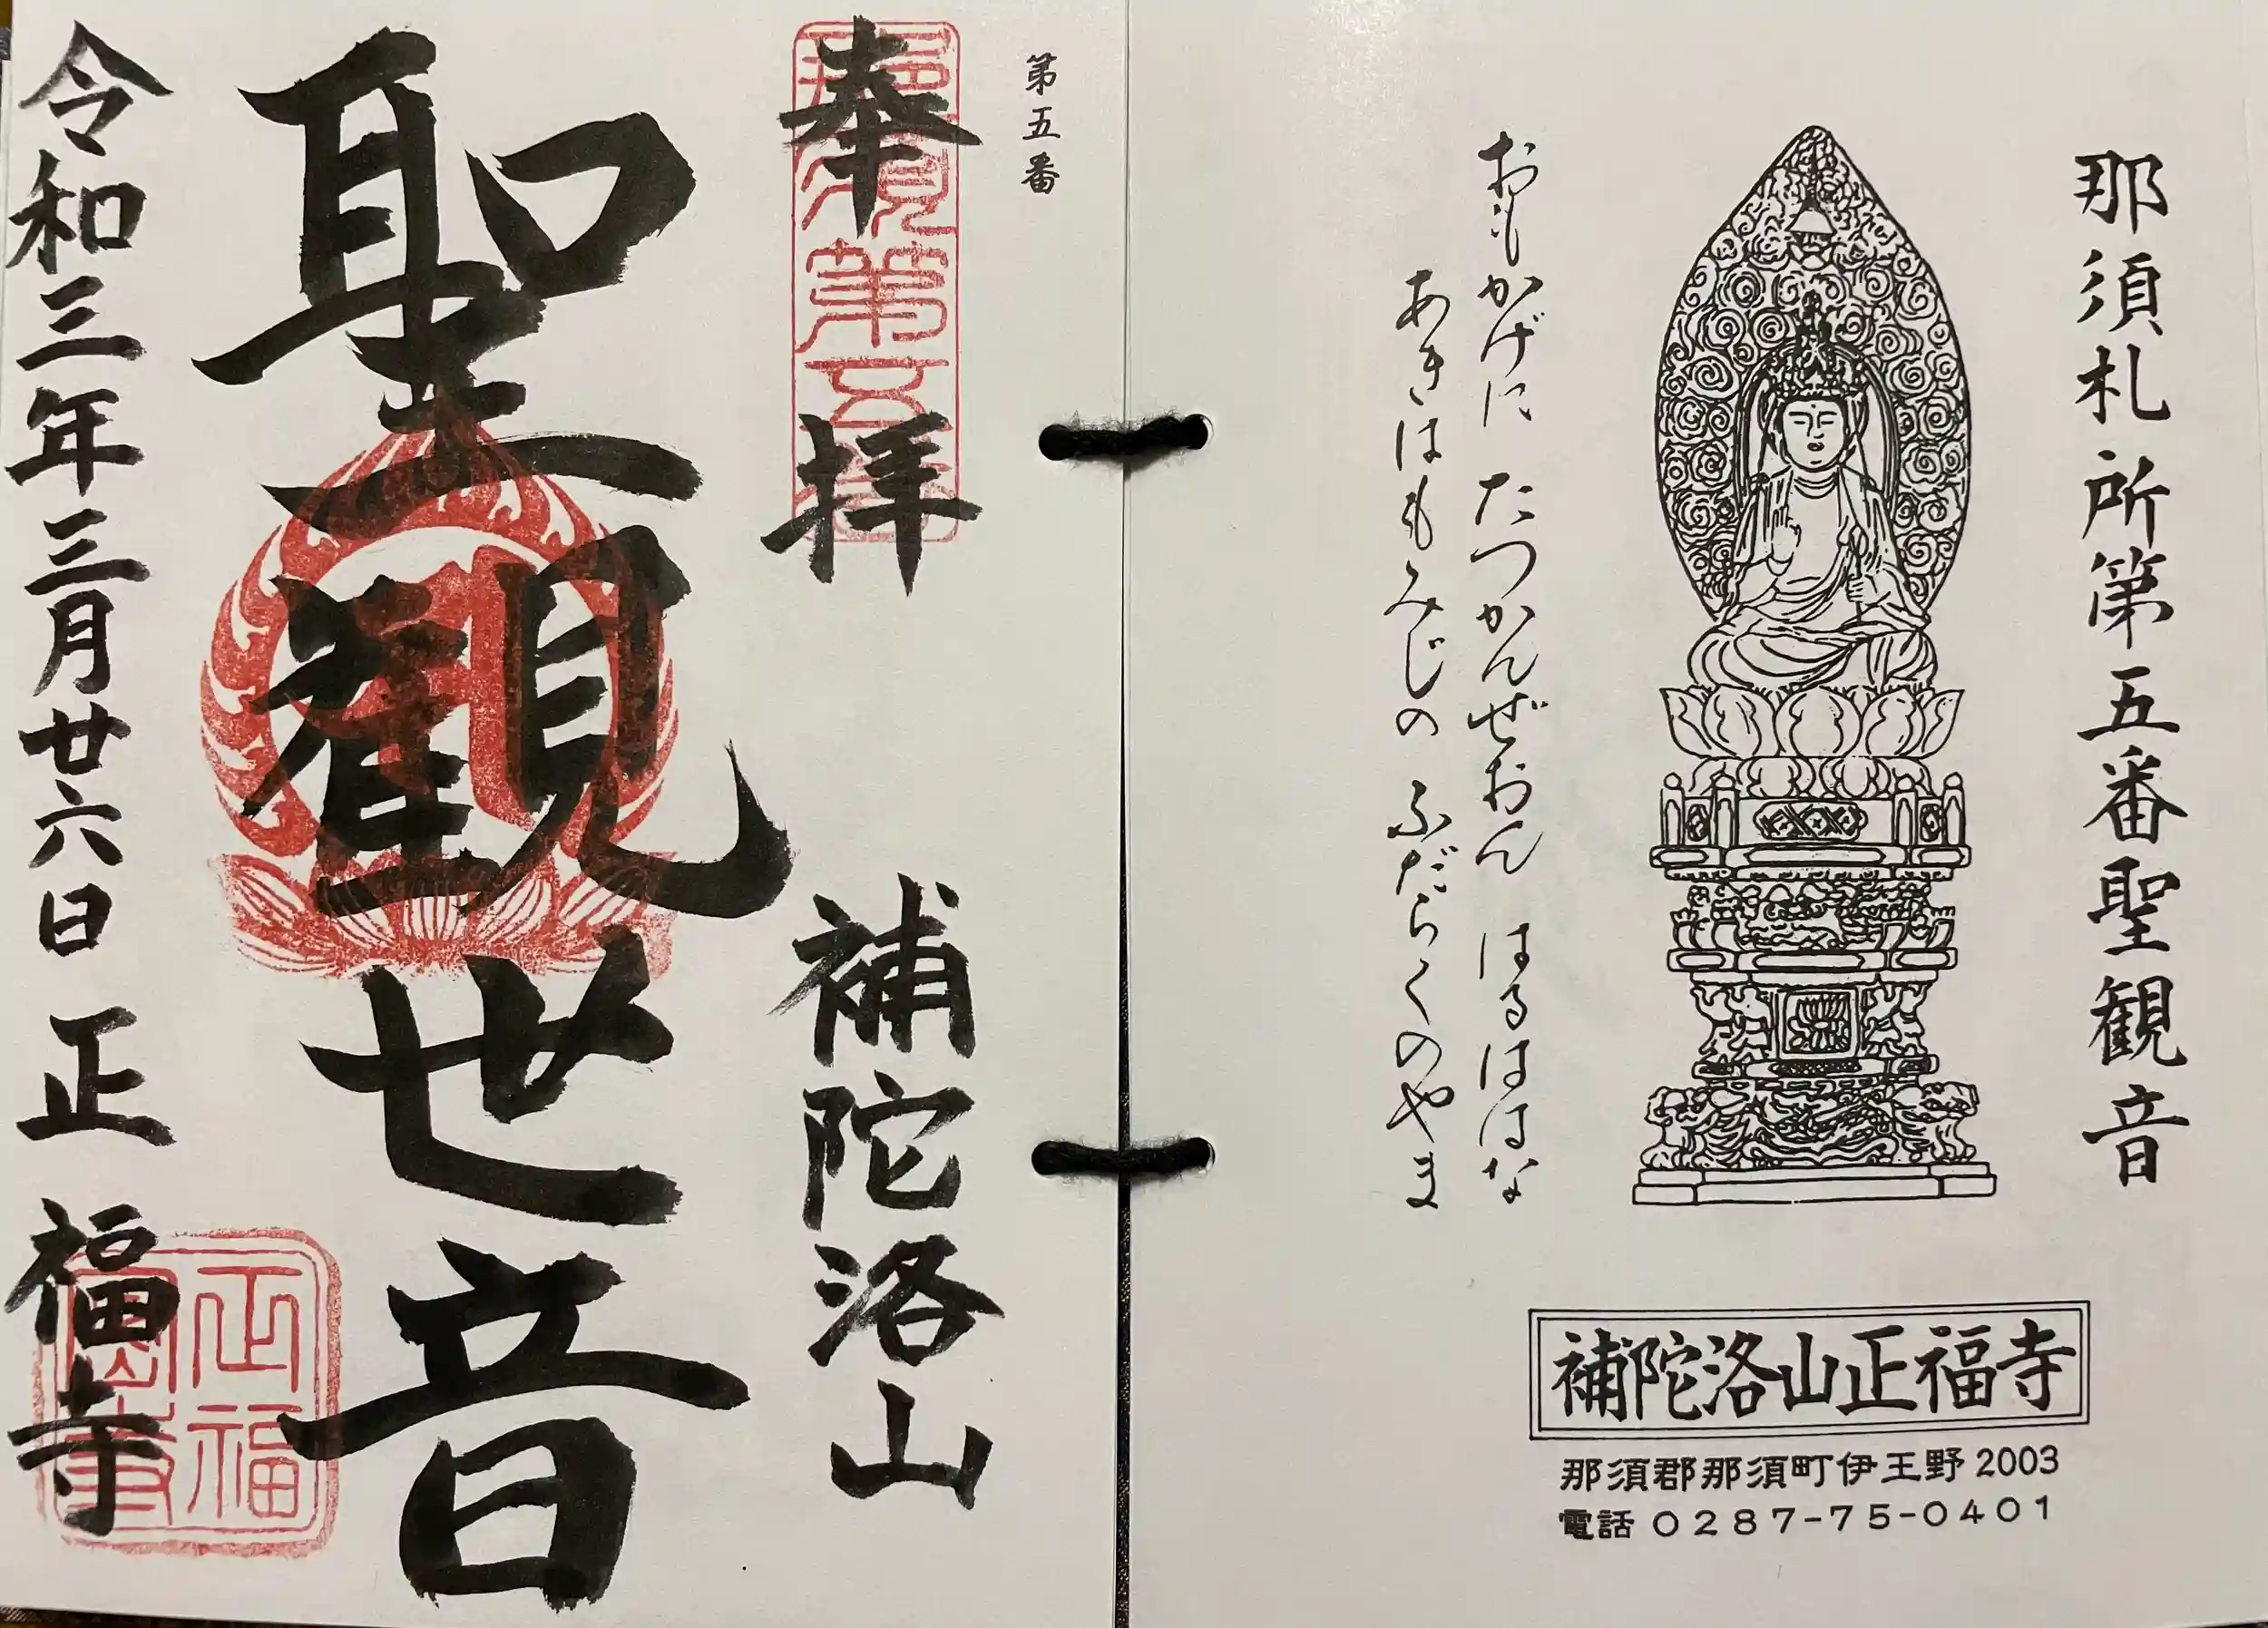 那須札所第五番聖観音
おもかげに たつかんぜおん はるははな
あきはもみじの ふだらくのやま
補陀洛山正福寺
那須郡那須町伊王野2003
電話 0287-75-0401
第五番
奉拝
補陀洛山
聖観世音
令和三年三月廿六日 正福寺
正福